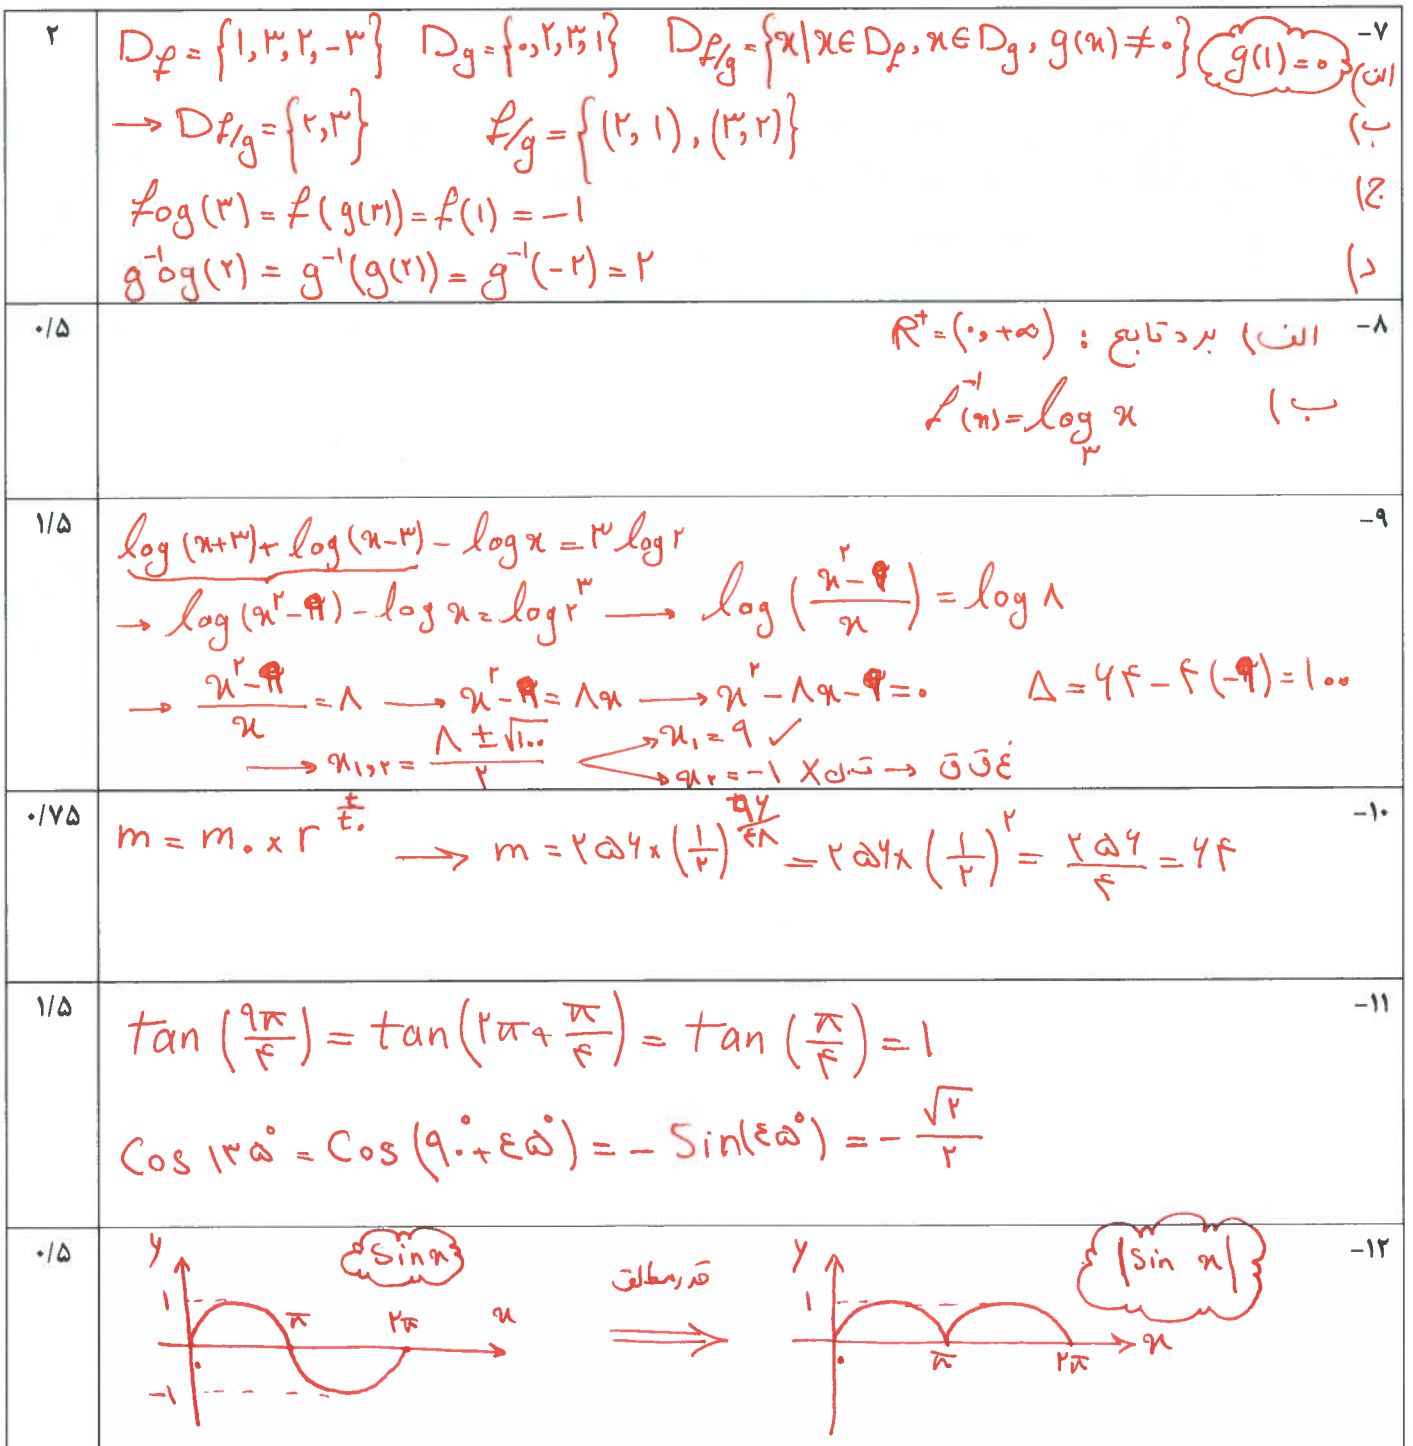 ۲
-۷
D_f = {۱, ۳, ۲, -۳}   D_g = {۰, ۲, ۳, ۱}   D_f/g = {x | x ∈ D_f, x ∈ D_g, g(x) ≠ ۰}   g(۱) = ۰   الف)
→ D_f/g = {۲, ۳}   f/g = {(۲, ۱), (۳, ۲)}   ب)
fog(۳) = f(g(۳)) = f(۱) = -۱   ج)
g⁻¹og(۲) = g⁻¹(g(۲)) = g⁻¹(-۲) = ۲   د)
۰/۵
-۸
الف) برد تابع : R⁺ = (۰, +∞)
ب) f⁻¹(x) = log₃ x
۱/۵
-۹
log(x+۳) + log(x-۳) - log x = ۳ log ۲
→ log(x²-۹) - log x = log ۲³ → log((x²-۹)/x) = log ۸
→ (x²-۹)/x = ۸ → x²-۹ = ۸x → x²-۸x-۹ = ۰   Δ = ۶۴-۴(-۹) = ۱۰۰
→ x₁,₂ = (۸ ± √۱۰۰)/۲   x₁ = ۹ ✓
x₂ = -۱ ✗ → غ ق ق
۰/۷۵
-۱۰
m = m₀ × r^(t/t₀) → m = ۲۵۶ × (۱/۲)^(۹۶/۴۸) = ۲۵۶ × (۱/۲)² = ۲۵۶/۴ = ۶۴
۱/۵
-۱۱
tan(۹π/۴) = tan(۲π + π/۴) = tan(π/۴) = ۱
Cos ۱۳۵° = Cos(۹۰° + ٤۵°) = - Sin(٤۵°) = - √۲/۲
۰/۵
-۱۲
y   Sin x   ۱   π   ۲π   x   ۰   -۱
قدر مطلق
y   |Sin x|   ۱   ۰   π   ۲π   x